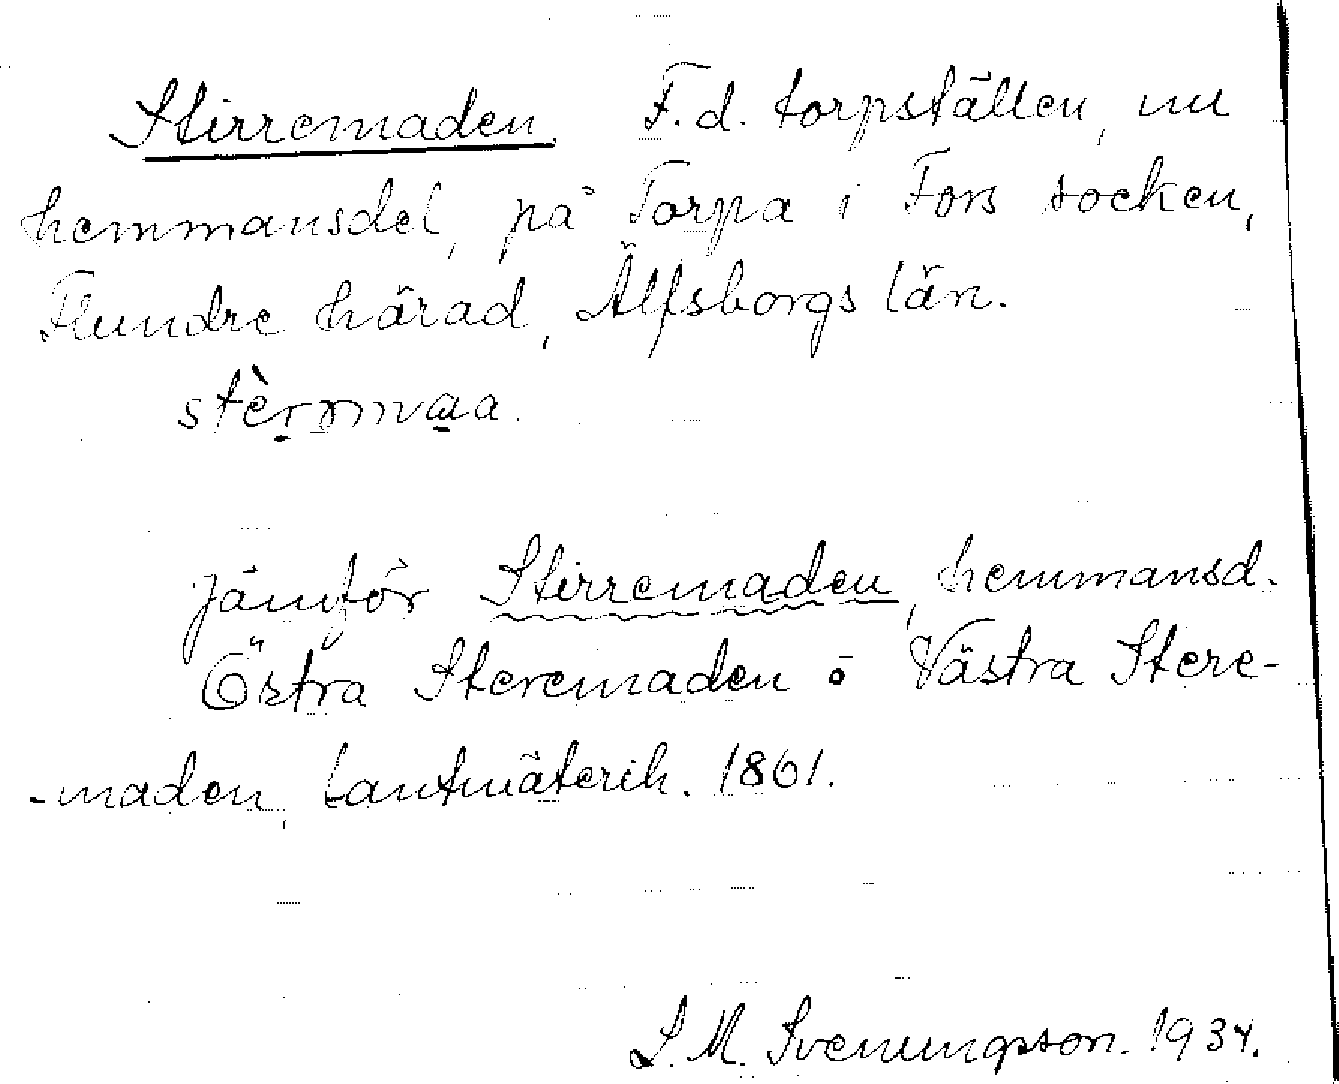 Stirremaden. F.d. torpställen, nu
hemmansdel, på Torpa i Fors socken,
Flundre härad, Älfsborgs län.
stèrmmaa.
jämför Stirremaden, hemmansd.
Östra Steremaden o Västra Stere-
-maden, Lantmäterih. 1861.
S. M. Svenungsson. 1934.